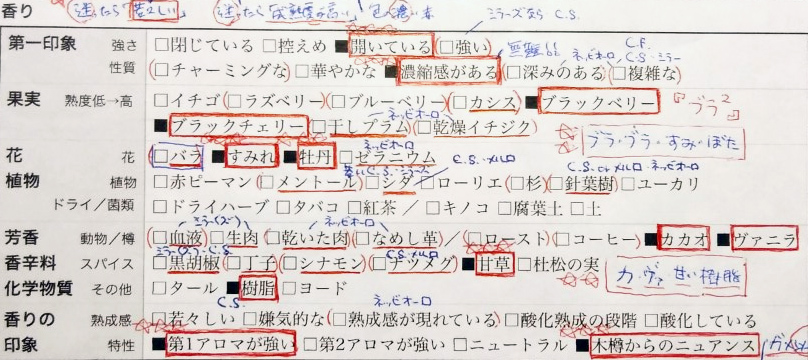 香り 迷ったら「若々しい」 迷ったら「成熟度が高い」 ミラーズなら C.S.
第一印象 強さ □閉じている □控えめ ■開いている □強い
無難!! ネッビオーロ C.F. C.S.
性質 (□チャーミングな) □華やかな ■濃縮感がある □深みのある (□複雑な)
果実 熟度低→高 □イチゴ (□ラズベリー) (□ブルーベリー) (□カシス) ■ブラックベリー 『ブラ2』
■ブラックチェリー (□干しプラム (□乾燥イチジク) ネッビオーロ ブラ・ブラ・すみ・ぼた
花 花 □バラ ■すみれ ■牡丹 □ゼラニウム ネッビオーロ C.S.・メルロ
植物 植物 □赤ピーマン (□メントール) □シダ □ローリエ (□杉) □針葉樹 □ユーカリ
ドライ/菌類 □ドライハーブ □タバコ □紅茶 / □キノコ □腐葉土 □土
ネッビオーロ
芳香 動物/樽 (□血液 □生肉 (□乾いた肉) (□なめし革) / (□ロースト) (□コーヒー) ■カカオ ■ヴァニラ
香辛料 スパイス □黒胡椒 (□丁子) (□シナモン) (□ナツメグ) ■甘草 □杜松の実 カ・ヴァ 甘い樹脂
化学物質 その他 □タール ■樹脂 □ヨード
C.S. ネッビオーロ
香りの 熟成感 □若々しい □嫌気的な (□熟成感が現れている) □酸化熟成の段階 □酸化している
印象 特性 ■第1アロマが強い □第2アロマが強い □ニュートラル ■木樽からのニュアンス